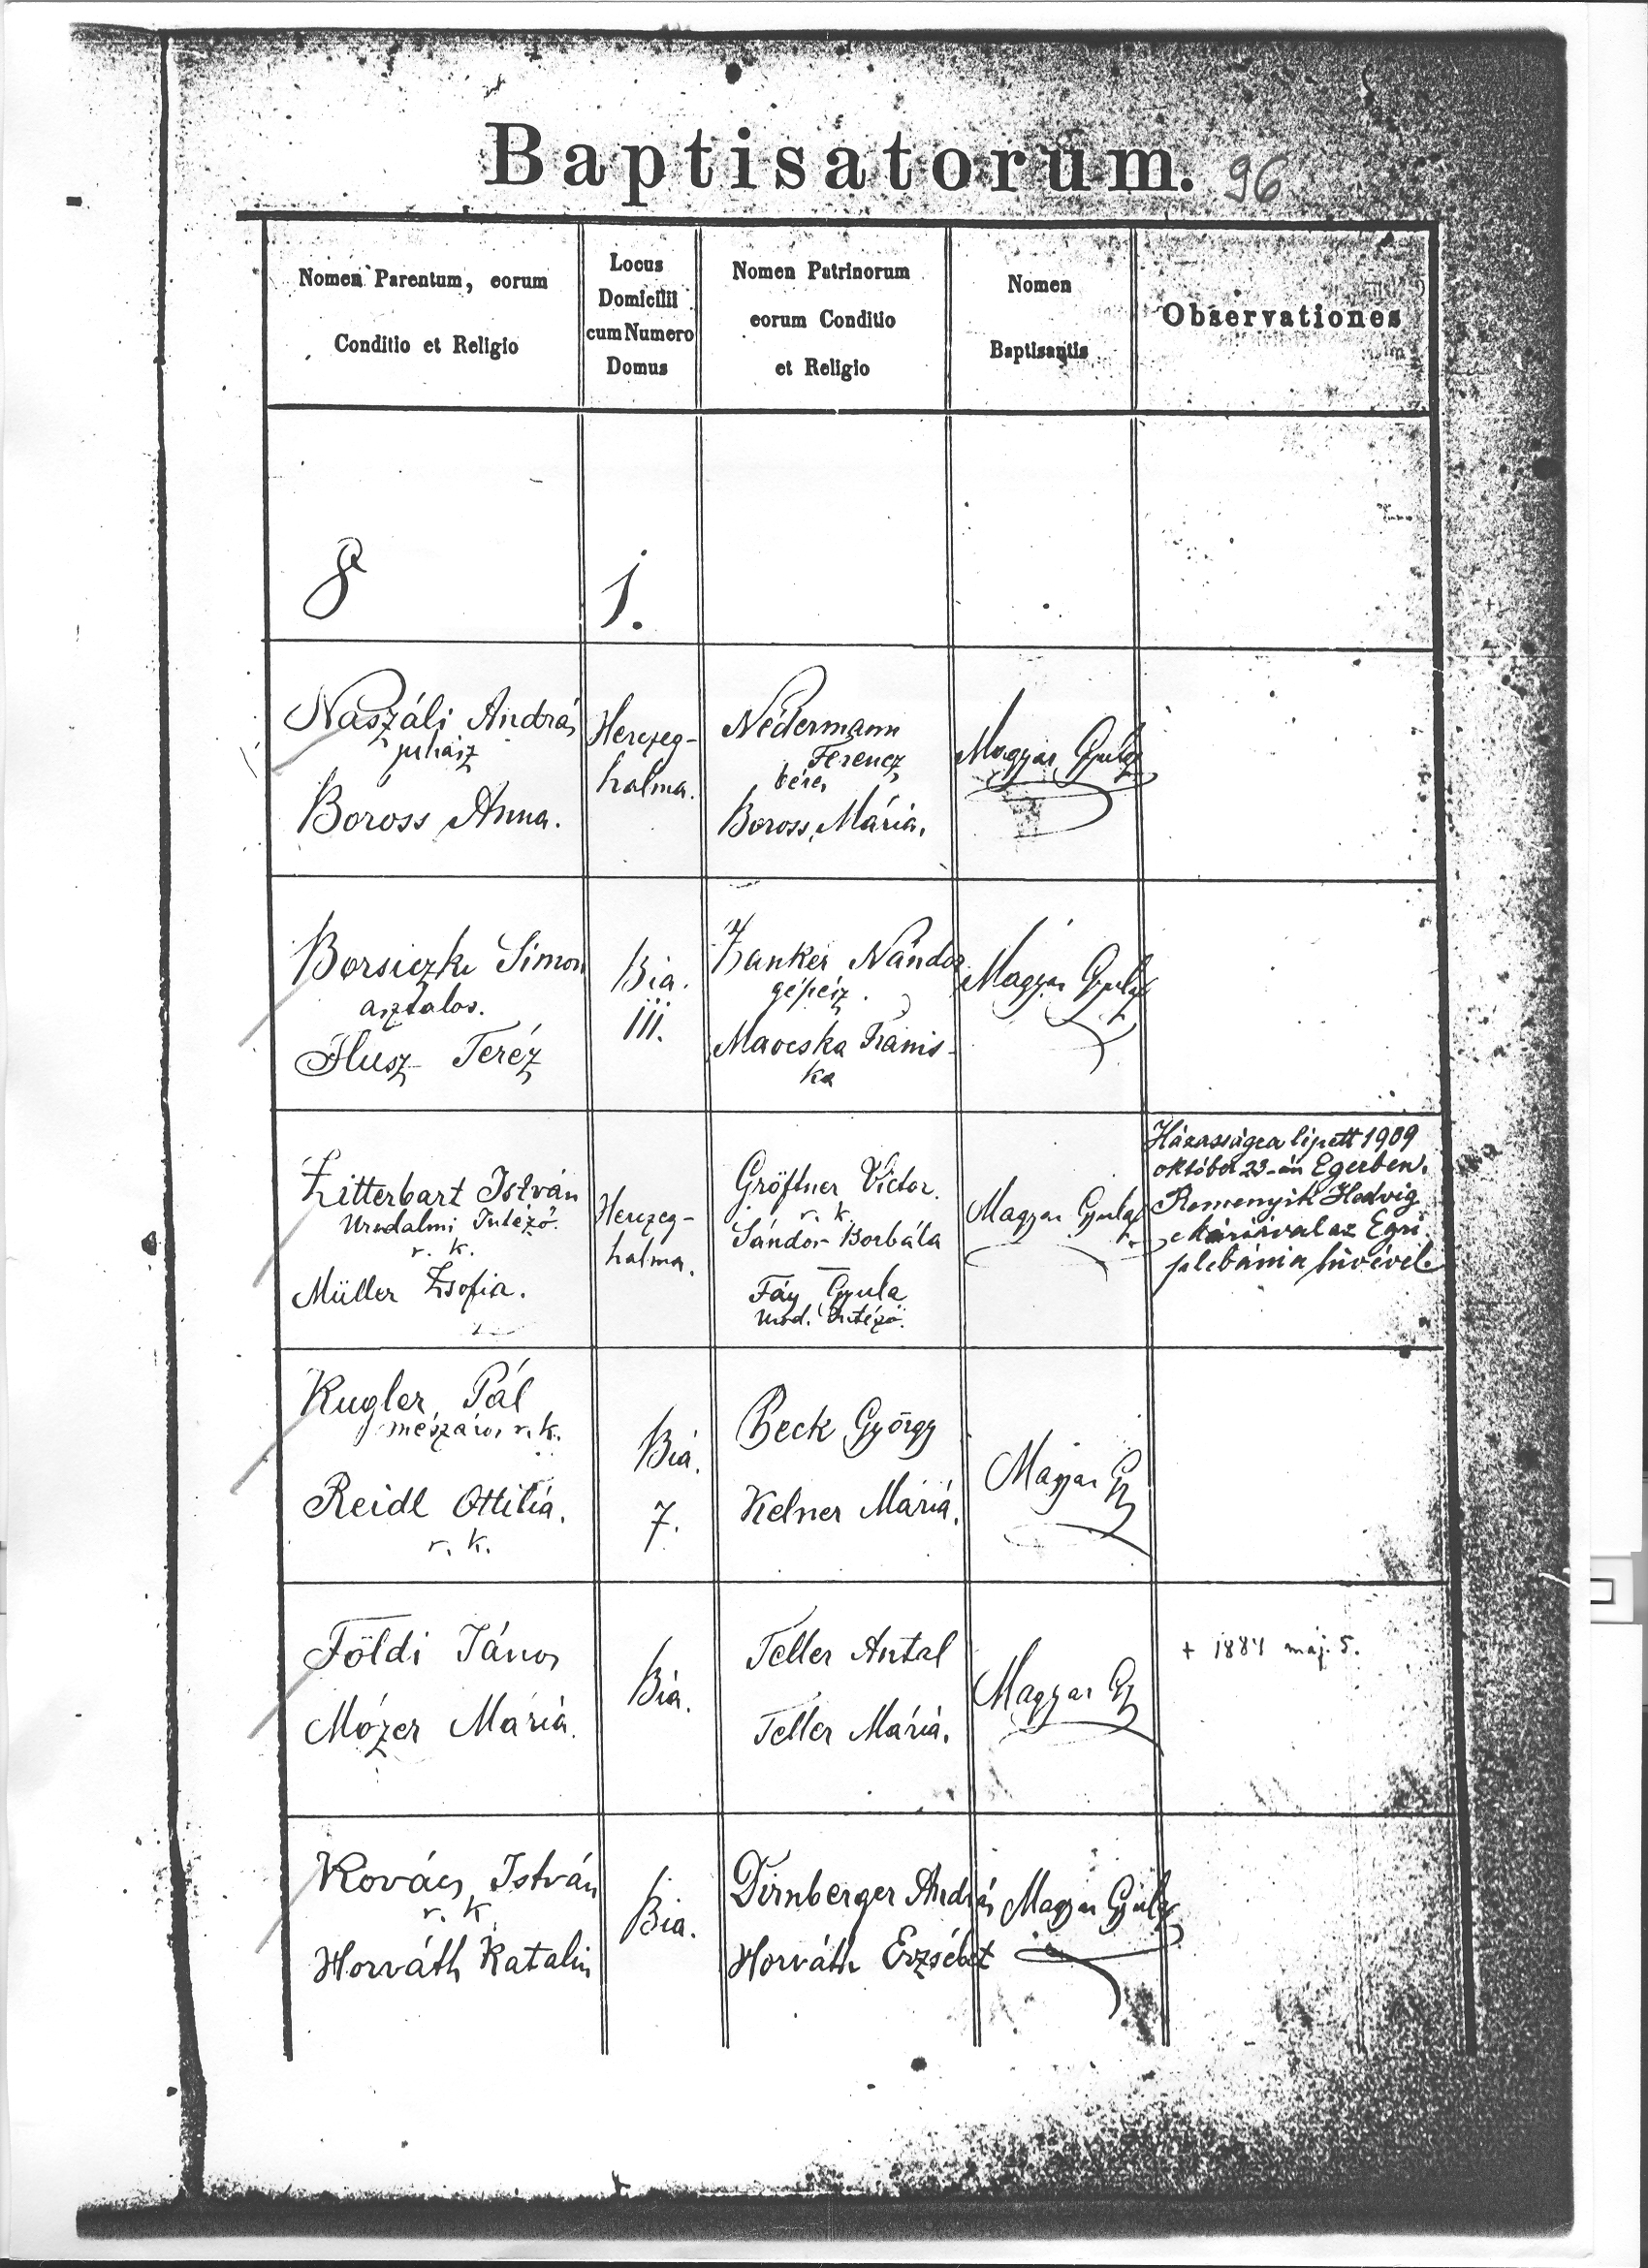 Baptisatorum. 96
Nomen Parentum, eorum
Conditio et Religio
Locus
Domicilii
cum Numero
Domus
Nomen Patrinorum
eorum Conditio
et Religio
Nomen
Baptisantis
Observationes
8
1.
Naszáli András
juhász
Boross Anna.
Herczeg-
halma.
Nédermann
Ferencz
béres
Boross Mária.
Magyar Gyula
Borsiczki Simon
asztalos.
Husz Teréz
Bia.
111.
Zanker Nándor
gépész.
Macska Franis-
ka
Magyar Gyula
Zitterbart István
Uradalmi Intéző.
r. k.
Müller Zsofia.
Herczeg-
halma.
Gröftner Victor.
r. k.
Sándor Borbála
Fáy Gyula
Urad. Intéző.
Magyar Gyula
Házasságra lépett 1909
október 23-án Egerben,
Remenyik Hedvig
Máriával az Egri
plebánia hivével
Kugler Pál
mészáros r. k.
Reidl Ottilia.
r. k.
Bia.
7.
Beck György
Kelner Mária.
Magyar Gy
Földi János
Mózer Mária.
Bia.
Teller Antal
Teller Mária.
Magyar Gy
+ 1884 máj. 5.
Kovács István
r. k.
Horváth Katalin
Bia.
Dirnberger András
Horváth Erzsébet
Magyar Gyula